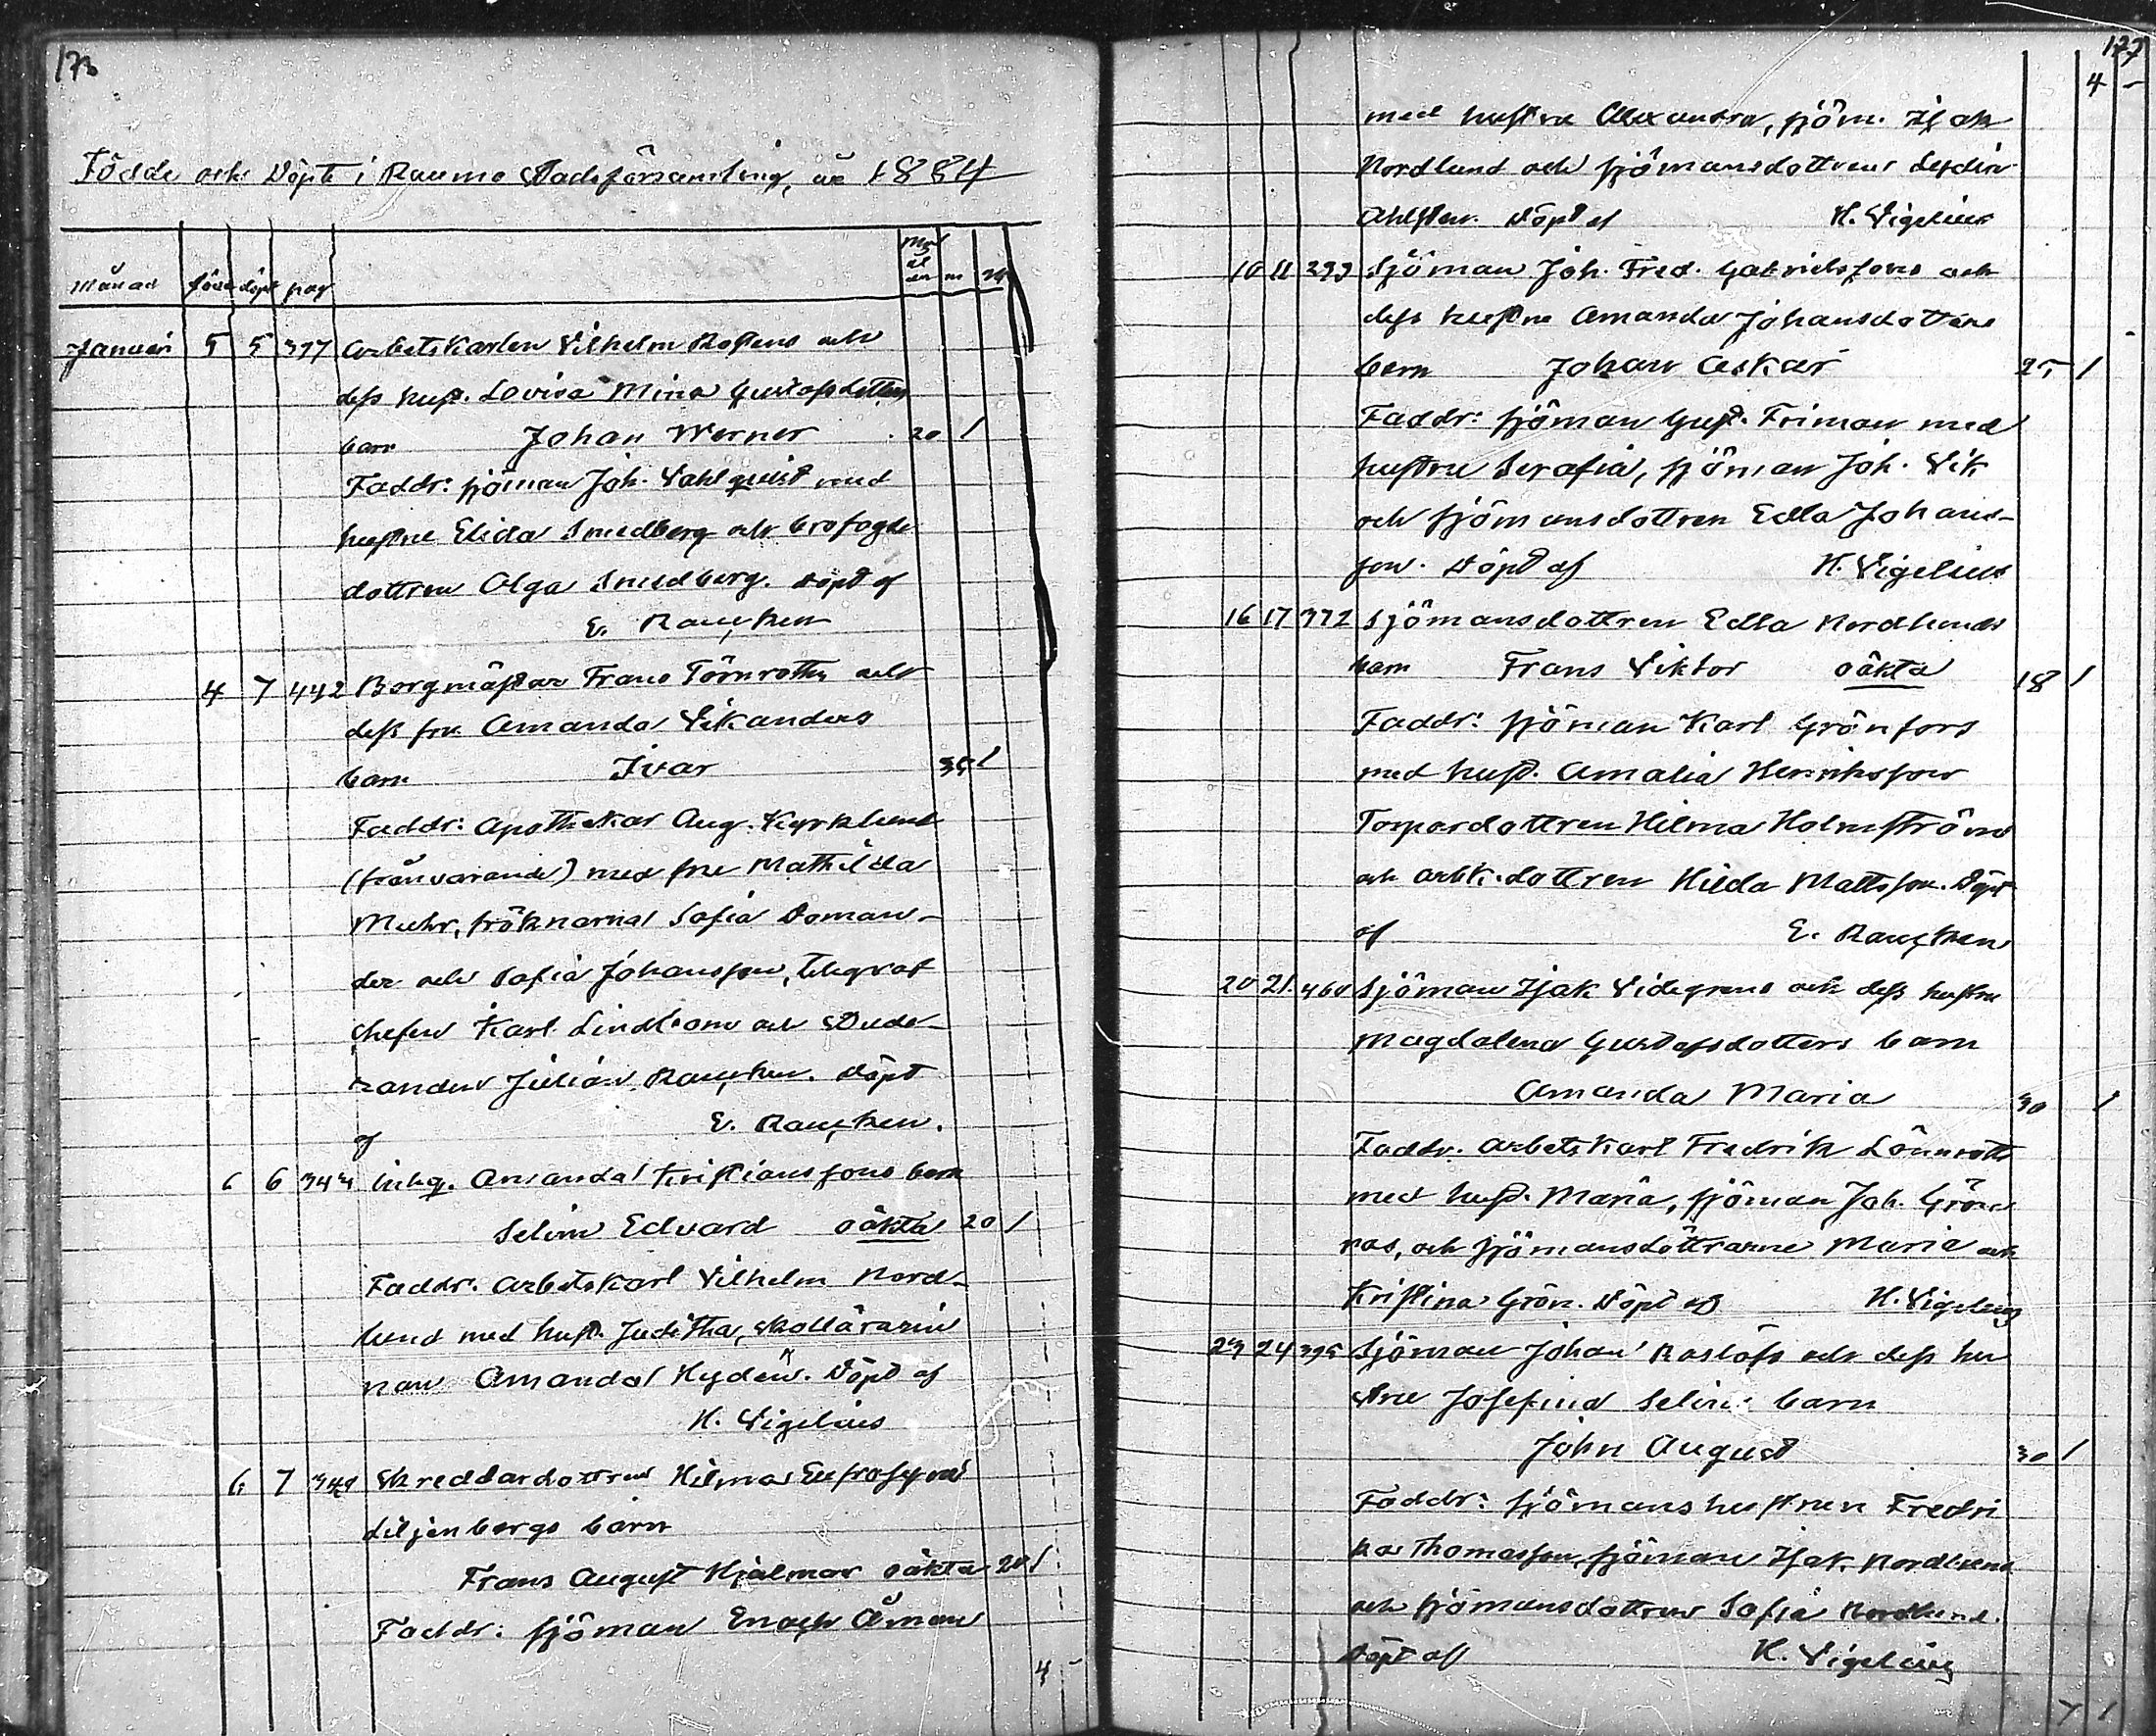 173
Födde och Döpte i Raumo Stadsförsamling, år 1884
Månad född döpt pag m
Januari 5 5 377 Arbetskarlen Vilhelm Rostens och
dess hust. Lovisa Mina Gustafsdotters
barn Johan Werner 20 1
Faddr: sjöman Joh. Vahlquist med
hustru Elida Smedberg och brofogde
dottren Olga Smedberg. Döpt af
E. Rancken
4 7 442 Borgmästar Frans Törnroths och
dess fru Amanda Vikanders
barn Ivar 35 1
Faddr: Apothekar Aug. Kyrklund
(frånvarande) med fru Mathilda
Muhr, fröknarna Sofia Doman-
der och Sofia Johansson, telegraf
chefen Karl Lindbom och Stude-
randen Julian Rancken. Döpt
af E. Rancken.
6 6 343 inhq. Amanda Kristianssons barn
Selim Edvard oäkta 20 1
Faddr. Arbetskarl Vilhelm Nord-
lund med hust. Juditha, skollärarin
nan Amanda Hydén. Döpt af
H. Vigelius
6 7 349 Skreddardottren Hilma Eufrosyna
Liljenbergs barn
Frans August Hjalmar oäkta 20 1
Faddr: sjöman Enoch Åman
4 -
177
4 -
med hustru Alexandra, sjöm. Isak
Nordlund och sjömansdottren
Ahlsten. Döpt af H. Vigelius
10 11 299 Sjöman Joh. Fred. Gabrielssons och
dess hustru Amanda Johansdotters
barn Johan Oskar 25 1
Faddr: sjöman Gust. Friman med
hustru Serafia, sjöman Joh. Vik
och sjömansdottren Edla Johans-
son. Döpt af H. Vigelius
16 17 372 Sjömansdottren Edla Nordlunds
barn Frans Viktor oäkta 18 1
Faddr: sjöman Karl Grönfors
med hust. Amalia Henriksson
Torpardottren Hilma Holmström
och arbk. dottren Hilda Mattsson. Döpt
af E. Rancken
20 21. 460 Sjöman Isak Videgrens och dess hustru
Magdalena Gustafsdotters barn
Amanda Maria 30 1
Faddr. Arbetskarl Fredrik Lönnroth
med hust. Maria, sjöman Joh. Grön
roos, och sjömansdöttrarne Maria och
Kristina Grön. Döpt af H. Vigelius
23 24 395 Sjöman Johan Roslöfs och dess hu
stru Josefina Selins barn
John August 30 1
Faddr: sjömanshustrun Fredri
ka Thomasson, sjöman Isak Nordlund
och sjömansdottren Sofia Nordlund.
Döpt af H. Vigelius
7 1